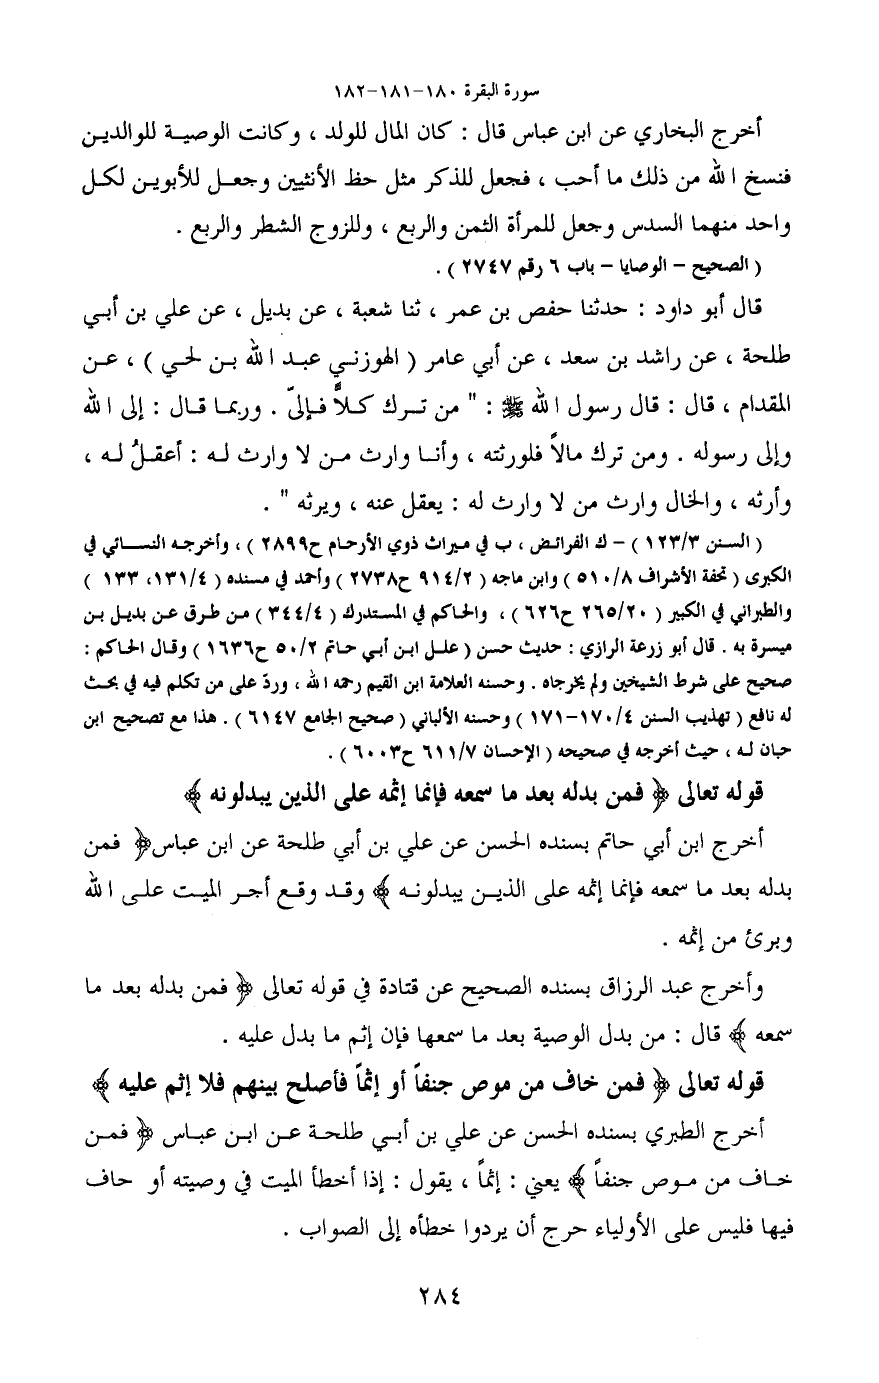 سورة البقرة ١٨٠-١٨١-١٨٢
أخرج البخاري عن ابن عباس قال : كان المال للولد ، وكانت الوصية للوالدين
فنسخ الله من ذلك ما أحب ، فجعل للذكر مثل حظ الأنثيين وجعل للأبوين لكل
واحد منهما السدس وجعل للمرأة الثمن والربع ، وللزوج الشطر والربع .
( الصحيح – الوصايا – باب ٦ رقم ٢٧٤٧ ) .
قال أبو داود : حدثنا حفص بن عمر ، ثنا شعبة ، عن بديل ، عن علي بن أبي
طلحة ، عن راشد بن سعد ، عن أبي عامر ( الهوزني عبد الله بن لحي ) ، عن
المقدام ، قال : قال رسول الله ﷺ : " من ترك كلاًّ فإليّ . وربما قال : إلى الله
وإلى رسوله . ومن ترك مالاً فلورثته ، وأنا وارث من لا وارث له : أعقلُ له ،
وأرثه ، والخال وارث من لا وارث له : يعقل عنه ، ويرثه " .
( السنن ١٢٣/٣ ) – ك الفرائض ، ب في ميراث ذوي الأرحام ح٢٨٩٩ ) ، وأخرجه النسائي في
الكبرى ( تحفة الأشراف ٥١٠/٨ ) وابن ماجه ( ٩١٤/٢ ح٢٧٣٨ ) وأحمد في مسنده ( ١٣١/٤، ١٣٣ )
والطبراني في الكبير ( ٢٦٥/٢٠ ح٦٢٦ ) ، والحاكم في المستدرك ( ٣٤٤/٤ ) من طرق عن بديل بن
ميسرة به . قال أبو زرعة الرازي : حديث حسن ( علل ابن أبي حاتم ٥٠/٢ ح١٦٣٦ ) وقال الحاكم :
صحيح على شرط الشيخين ولم يخرجاه . وحسنه العلامة ابن القيم رحمه الله ، وردّ على من تكلم فيه في بحث
له نافع ( تهذيب السنن ١٧٠/٤–١٧١ ) وحسنه الألباني ( صحيح الجامع ٦١٤٧ ) . هذا مع تصحيح ابن
حبان له ، حيث أخرجه في صحيحه ( الإحسان ٦١١/٧ ح٦٠٠٣ ) .
قوله تعالى ﴿ فمن بدله بعد ما سمعه فإنما إثمه على الذين يبدلونه ﴾
أخرج ابن أبي حاتم بسنده الحسن عن علي بن أبي طلحة عن ابن عباس﴿ فمن
بدله بعد ما سمعه فإنما إثمه على الذين يبدلونه ﴾ وقد وقع أجر الميت على الله
وبرئ من إثمه .
وأخرج عبد الرزاق بسنده الصحيح عن قتادة في قوله تعالى ﴿ فمن بدله بعد ما
سمعه ﴾ قال : من بدل الوصية بعد ما سمعها فإن إثم ما بدل عليه .
قوله تعالى ﴿ فمن خاف من موص جنفاً أو إثماً فأصلح بينهم فلا إثم عليه ﴾
أخرج الطبري بسنده الحسن عن علي بن أبي طلحة عن ابن عباس ﴿ فمن
خاف من موص جنفاً ﴾ يعني : إثماً ، يقول : إذا أخطأ الميت في وصيته أو حاف
فيها فليس على الأولياء حرج أن يردوا خطأه إلى الصواب .
٢٨٤